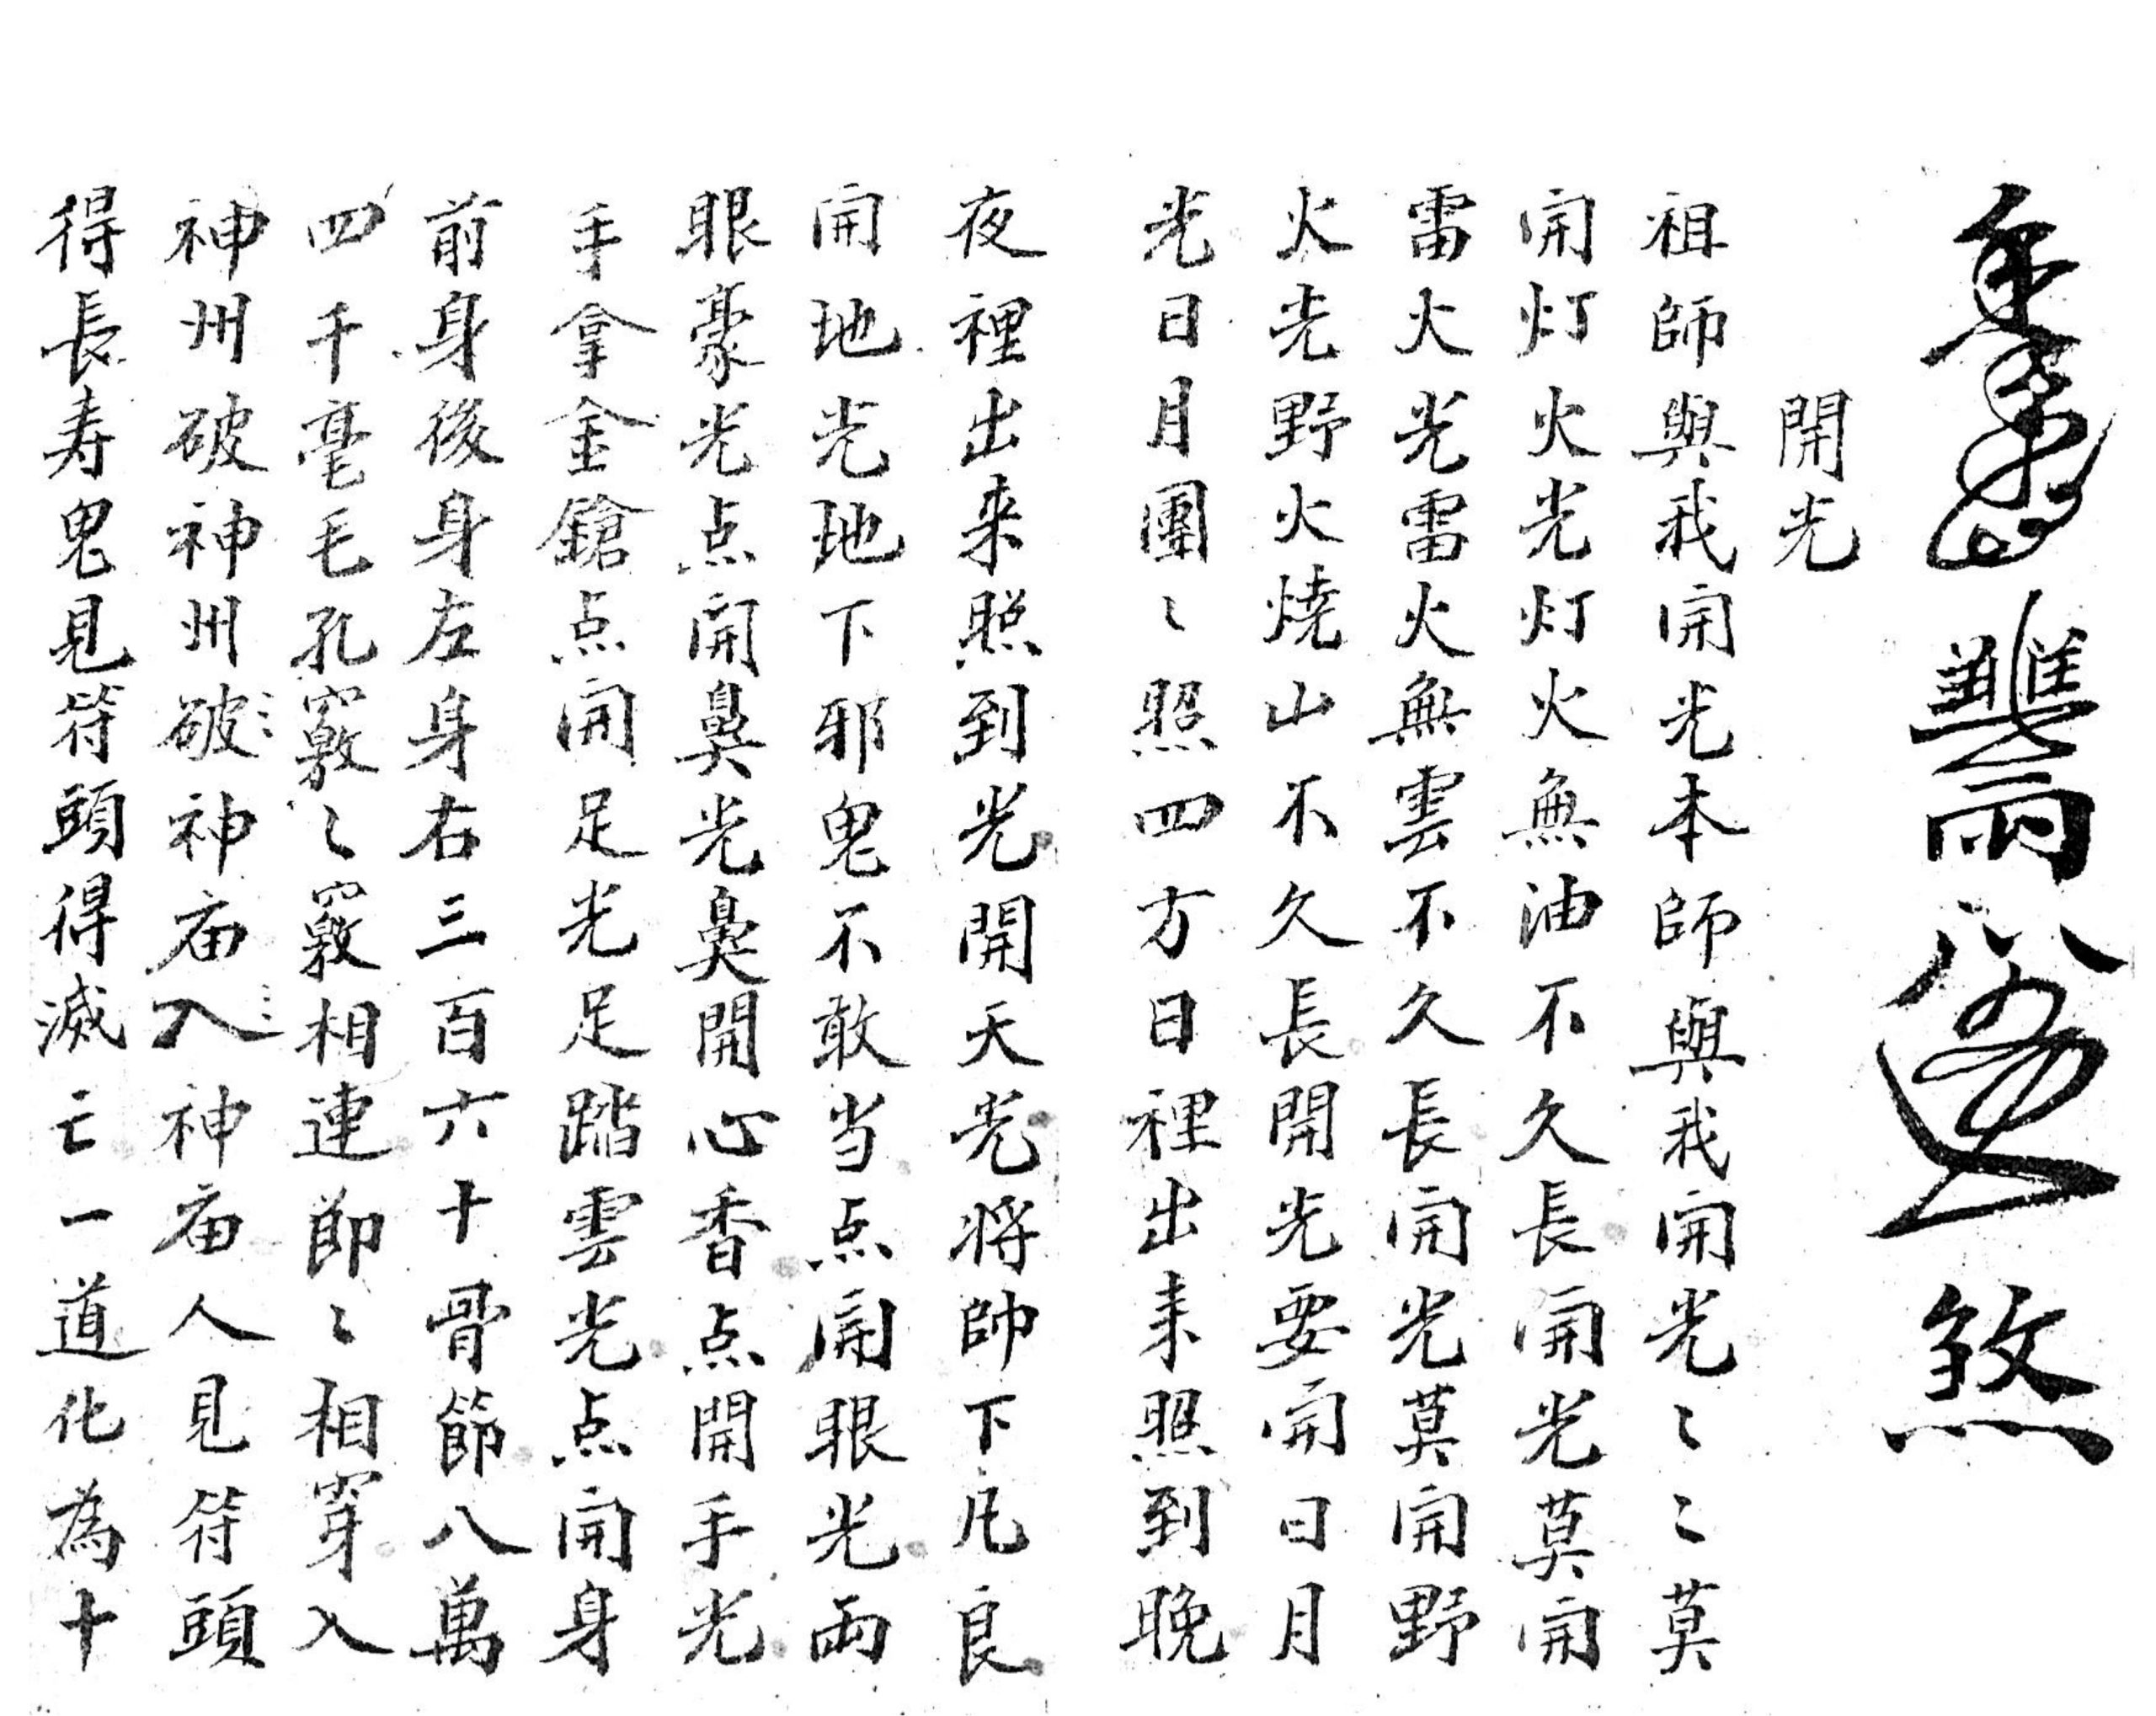 煞
開光
祖師與我開光本師與我開光〻〻莫
開灯火光灯火無油不久長開光莫開
雷火光雷火無雲不久長開光莫開野
火光野火燒山不久長開光要開日月
光日月團〻照四方日裡出来照到晚
夜裡出来照到光開天光将帥下凡良
開地光地下邪鬼不敢当点開眼光両
眼豪光点開鼻光鼻開心香点開手光
手拿金鎗点開足光足踏雲光点開身
前身後身左身右三百六十骨節八萬
四千毫毛孔竅〻竅相連節〻相穿入
神州破神州破神庙入神庙人見符頭
得長寿鬼見符頭得滅亡一道化為十